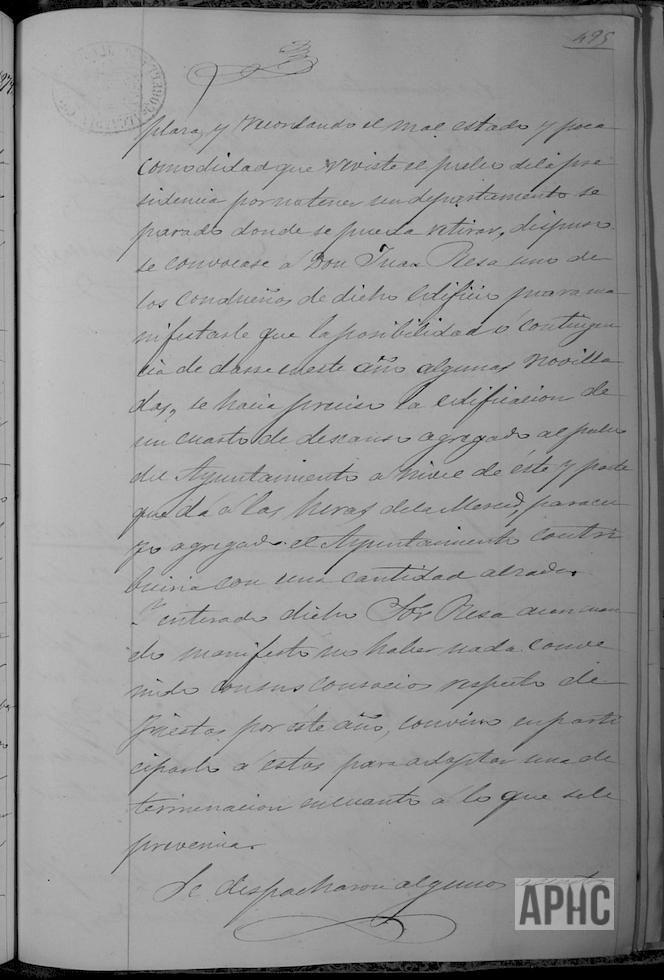 495
plaza, y recordando el mal estado y poca
comodidad que reviste el palco de la pre
sidencia por no tener un departamento se
parado donde se pueda retirar, dispuso
se convocase á Don Juan Resa uno de
los condueños de dicho edificio para ma
nifestarle que la posibilidad ó contingen
cia de darse en este año algunas novilla
das, se hacia preciso la edificacion de
un cuarto de descanso agregado al palco
del Ayuntamiento a nivel de éste y parte
que dá á las heras de la Merced, para cu
yo agregado el Ayuntamiento contri
buiria con una cantidad alzada.
Y enterado dicho Sor Resa aun cuan
do manifestó no haber nada conve
nido con sus consocios respecto de
fiestas por éste año, convino en parti
ciparlo á estos para adoptar una de
terminacion en cuanto á lo que se le
prevenia.
Se despacharon algunos
APHC